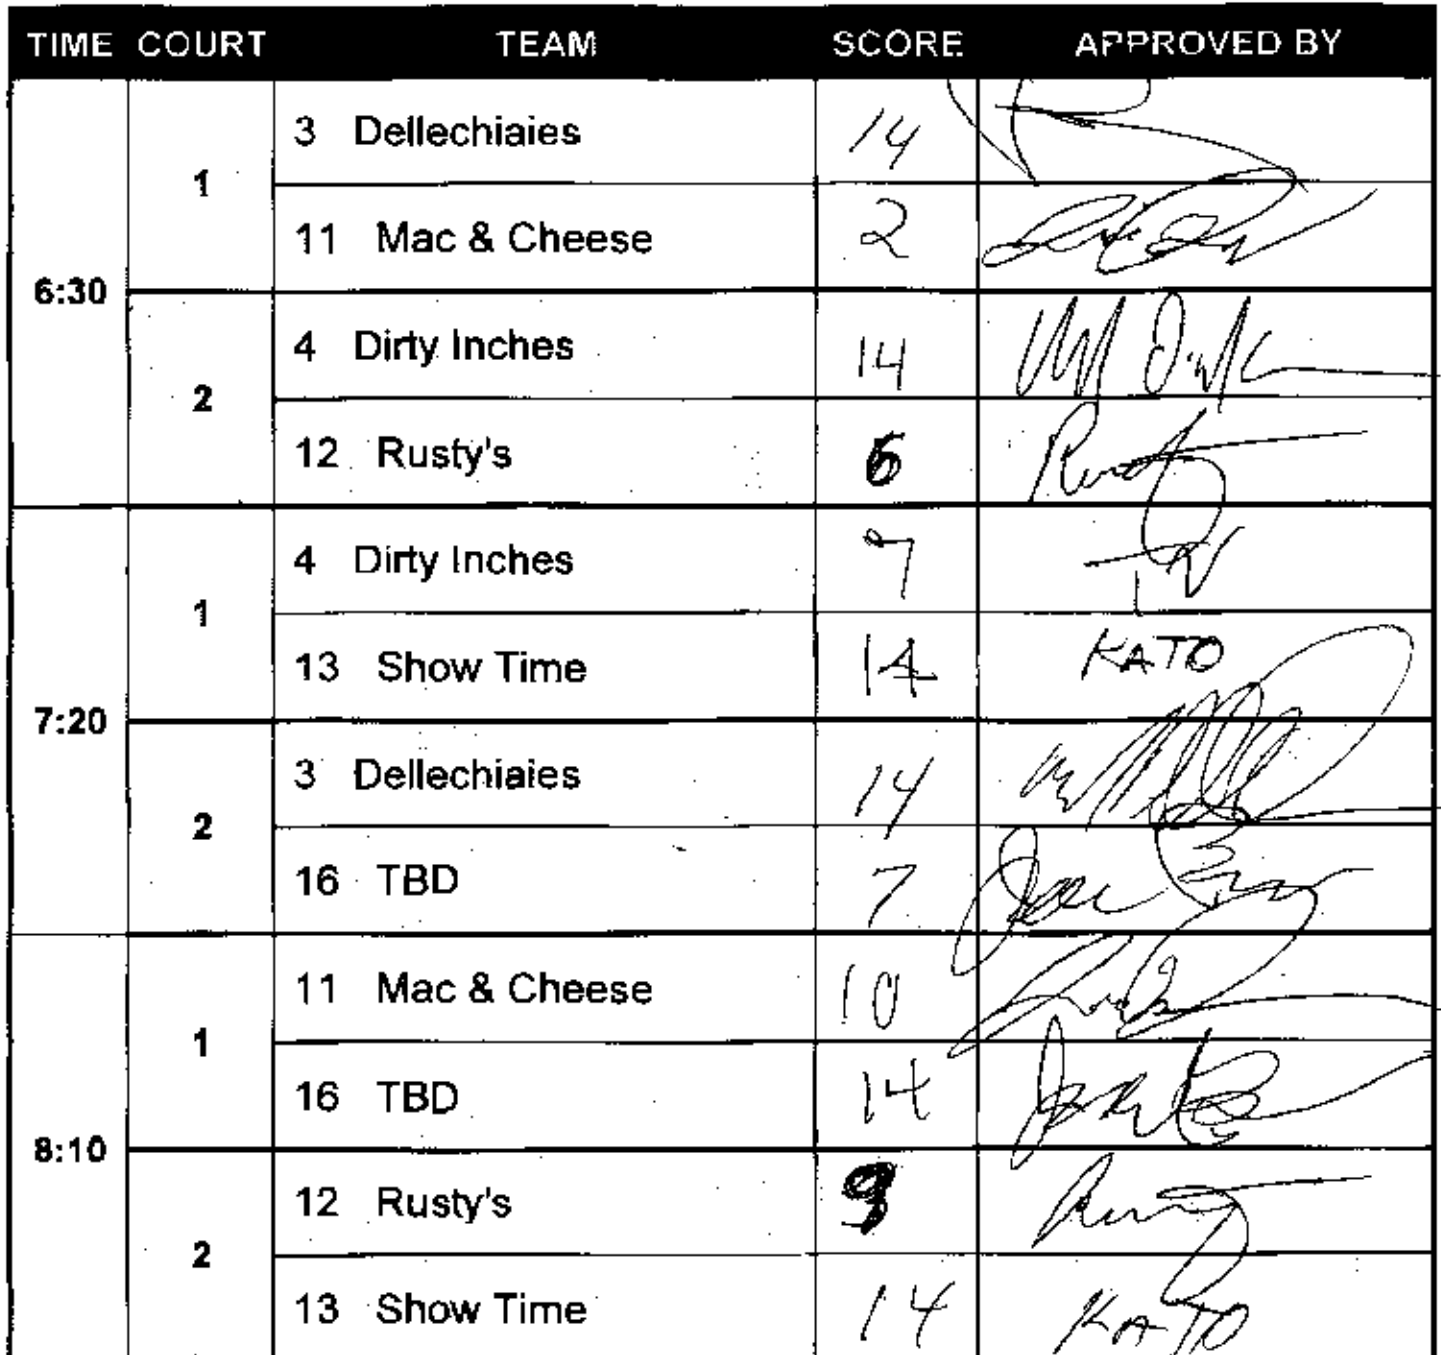 TIME COURT TEAM SCORE APPROVED BY
6:30
1
3 Dellechiaies 14
11 Mac & Cheese 2
2
4 Dirty Inches 14
12 Rusty's 6
7:20
1
4 Dirty Inches 9
13 Show Time 14 KATO
2
3 Dellechiaies 14
16 TBD 7
8:10
1
11 Mac & Cheese 10
16 TBD 14
2
12 Rusty's 9
13 Show Time 14 KATO